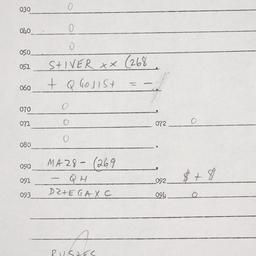 030 0
040 0
050 0
051 S+IVER xx (268 .
060 + QGOJIS+ = -
070 0
071 0 072 0
080 0
090 MA28- (269 .
091 - QH 092 $ + 8
093 DZ+EGAXC 096 0